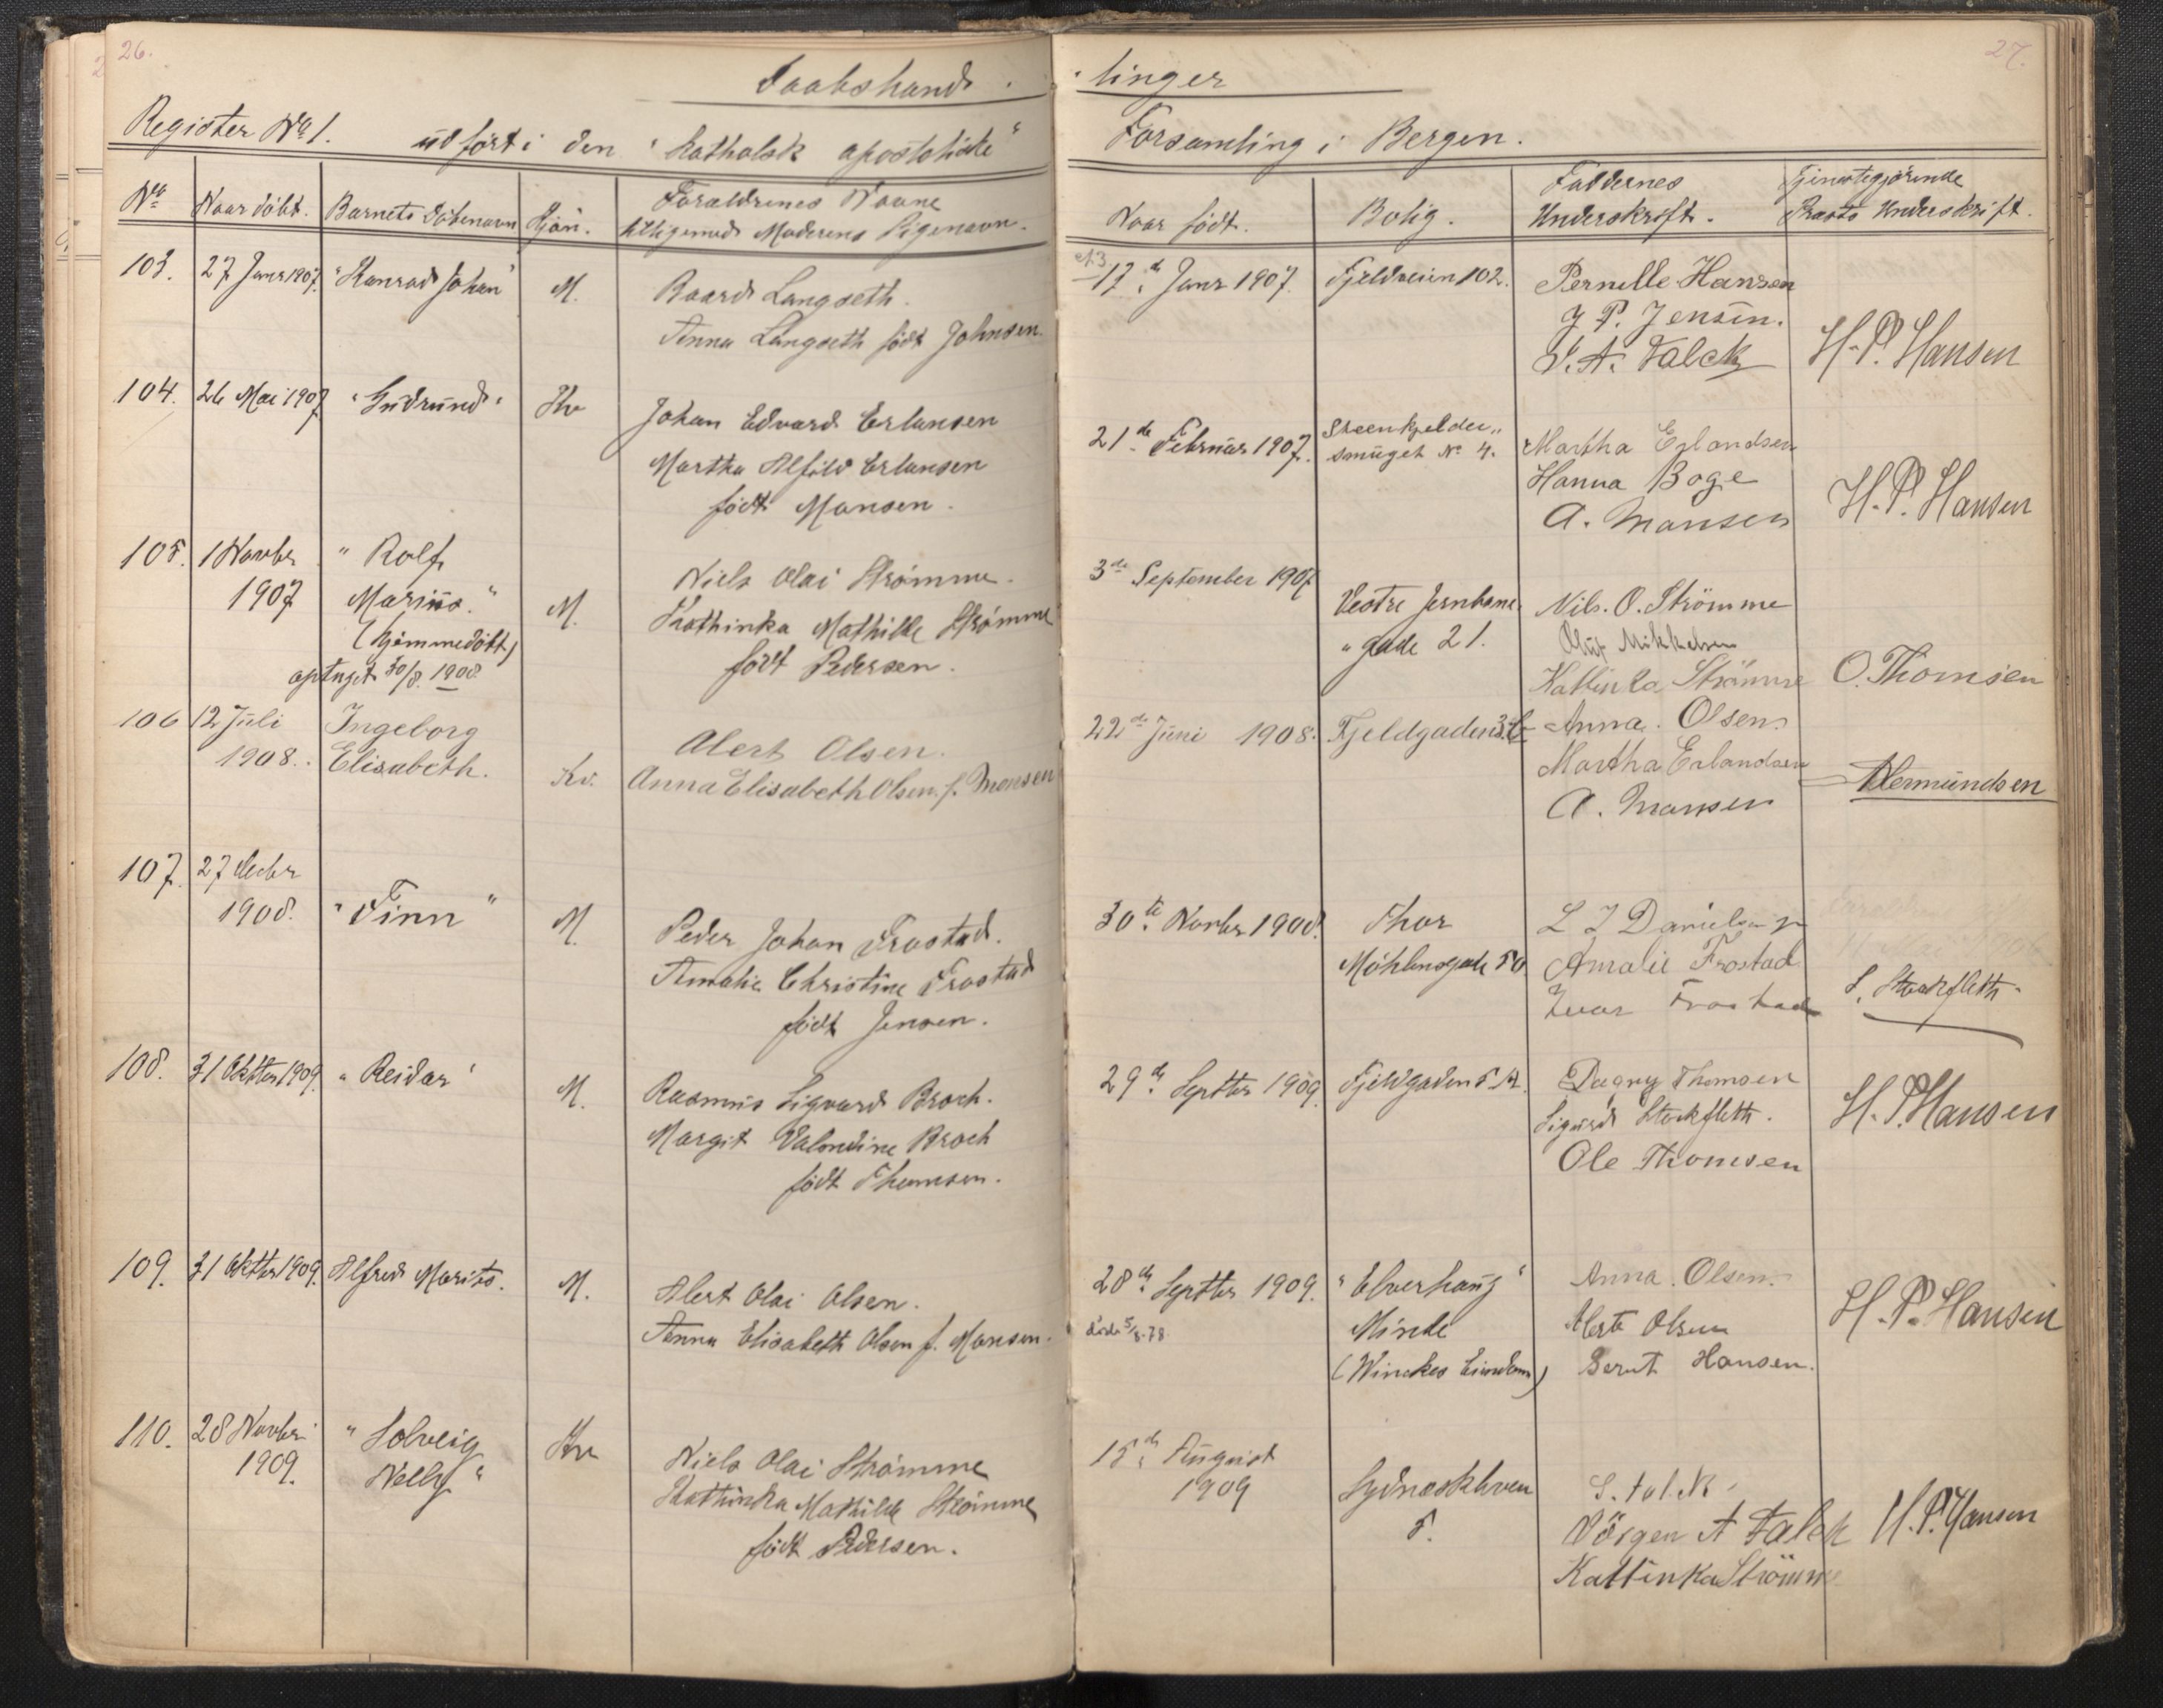 26.
27.
Daabshand
linger
Register No 1. udført i den "katholsk apostoliske"
Forsamling i Bergen.
No
Naar döbt.
Barnets Döbenavn
Kjön.
Forældrenes Navne
tilligemed Moderens Pigenavn.
Naar född.
Bolig.
Faddernes
Underskrift.
Tjenestegjörende
Præsts Underskrift.
103.
27 Janr 1907.
"Konrad Johan"
M.
Baard Langseth.
Anna Langseth födt Johnsen.
17de Janr 1907.
Fjeldveien 102.
Pernelle Hansen
J P. Jensen.
J. A. Falck
H. P. Hansen
104.
26 Mai 1907
"Gudrund"
Kv
Johan Edvard Erlansen
Martha Alfild Erlansen
födt Monsen.
21de Februar 1907.
Steenkjelder„
smuget No 4.
Martha Erlandsen
Hanna Boge
A. Monsen
H. P. Hansen
105.
1 Novbr
1907
"Rolf
Marius."
(hjemmedöbt)
optaget 30/8. 1908
M.
Niels Olai Strömme.
Kathinka Mathilde Strömme
födt Pedersen.
3de September 1907
Vestre Jernbane
"gade 21.
Nils. O. Strömme
Oluf Mikkelsen
Kattinka Strömme
O. Thomsen
106
12 Juli
1908.
Ingeborg
Elisabeth.
Kv.
Alert Olsen.
Anna Elisabeth Olsen f. Monsen
22de Juni 1908.
Fjeldgaden
Anna. Olsen.
Martha Erlandsen
A. Monsen
Hermundsen
107.
27 Decbr
1908.
"Finn"
M.
Peder Johan Frostad.
Amalie Christine Frostad
födt Jensen.
30te Novbr 1908.
Thor
Möhlensgade 50
L J Danielsen
Amalie Frostad
Ivar Frostad
S. Stockfleth.
108.
31 Oktbr 1909.
"Reidar"
M.
Rasmus Sigvard Broch.
Margit Valendine Broch
födt Thomsen.
29de Septbr 1909.
Fjeldgaden 5 A.
Dagny Thomsen
Sigurd Stockfleth.
Ole Thomsen
H. P. Hansen
109.
31 Oktbr 1909.
Alfred Morits.
M.
Alert Olai Olsen.
Anna Elisabeth Olsen f. Monsen.
28de Septbr 1909.
döde 5/8-78
"Elverhaug"
Minde
(Winckes Eiendom)
Anna. Olsen.
Alert Olsen
Bernt Hansen.
H. P. Hansen
110.
28 Novbr
1909.
"Solveig
Nelly"
Kv
Niels Olai Strömme
Kathinka Mathilde Strömme
födt Pedersen.
15de August
1909
Sydneskleven
5.
S. Falck
Jörgen A Falck
Kattinka Strömme
H. P. Hansen